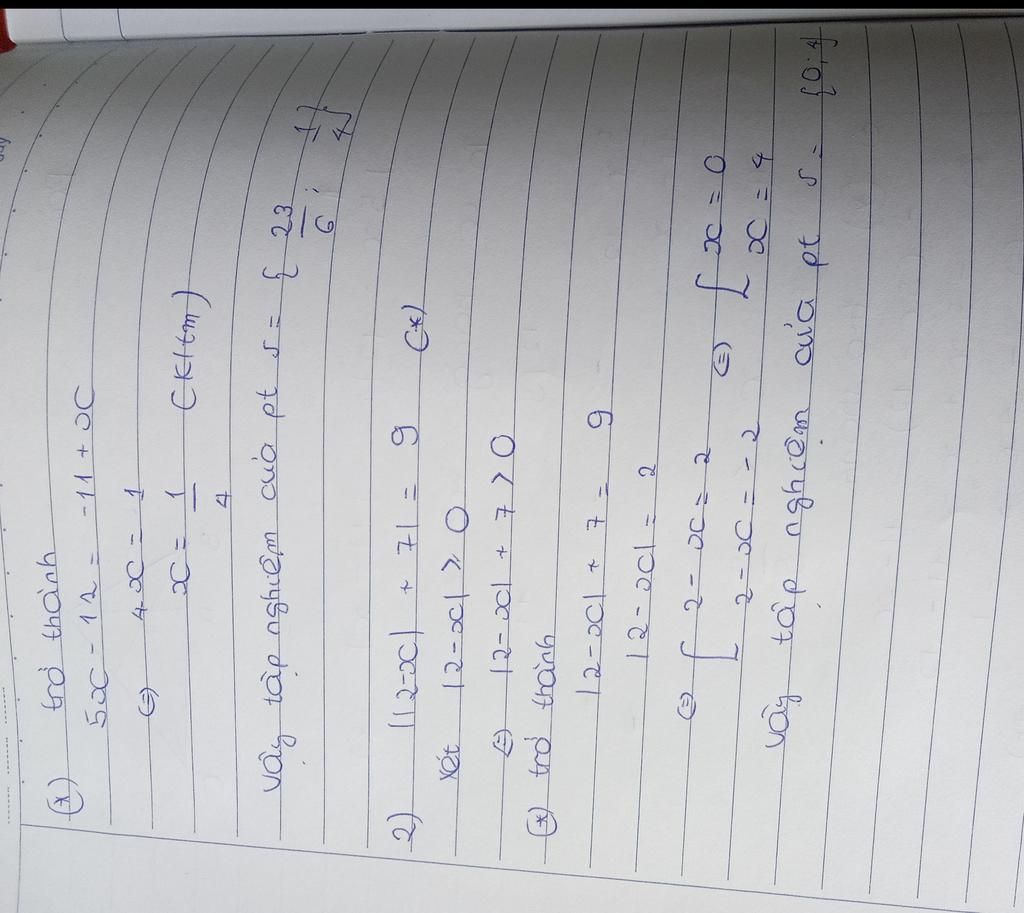 (*) trở thành
5x - 12 = -11 + x
⇔ 4x = 1
x = 1/4 (kltm)
Vậy tập nghiệm của pt S = { 23/6 ; 1/4 }
2) ||2-x| + 7| = 9 (*)
Xét |2-x| ≥ 0
⇔ |2-x| + 7 > 0
(*) trở thành
|2-x| + 7 = 9
|2-x| = 2
⇔ [ 2-x = 2 ⇔ [ x = 0
2-x = -2 x = 4
Vậy tập nghiệm của pt S = {0; 4}